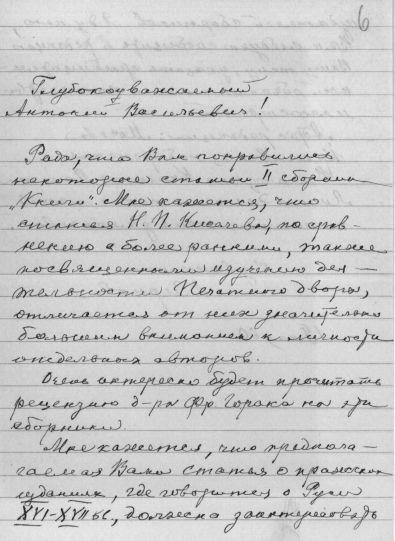 6
Глубокоуважаемый
Антоний Васильевич!
Рада, что Вам понравились
некоторые статьи II сборника
"Книги". Мне кажется, что
статья Н. П. Киселева, по срав-
нению с более ранними, также
посвященными изучению дея-
тельности Печатного двора,
отличается от них значительно
большим вниманием к личности
отдельных авторов.
Очень интересно будет прочитать
рецензию д-ра Фр Горака на эти
сборники.
Мне кажется, что предпола-
гаемая Вами статья о пражском
издании, где говорится о Руси
XVI-XVII вс, должна заинтересовать